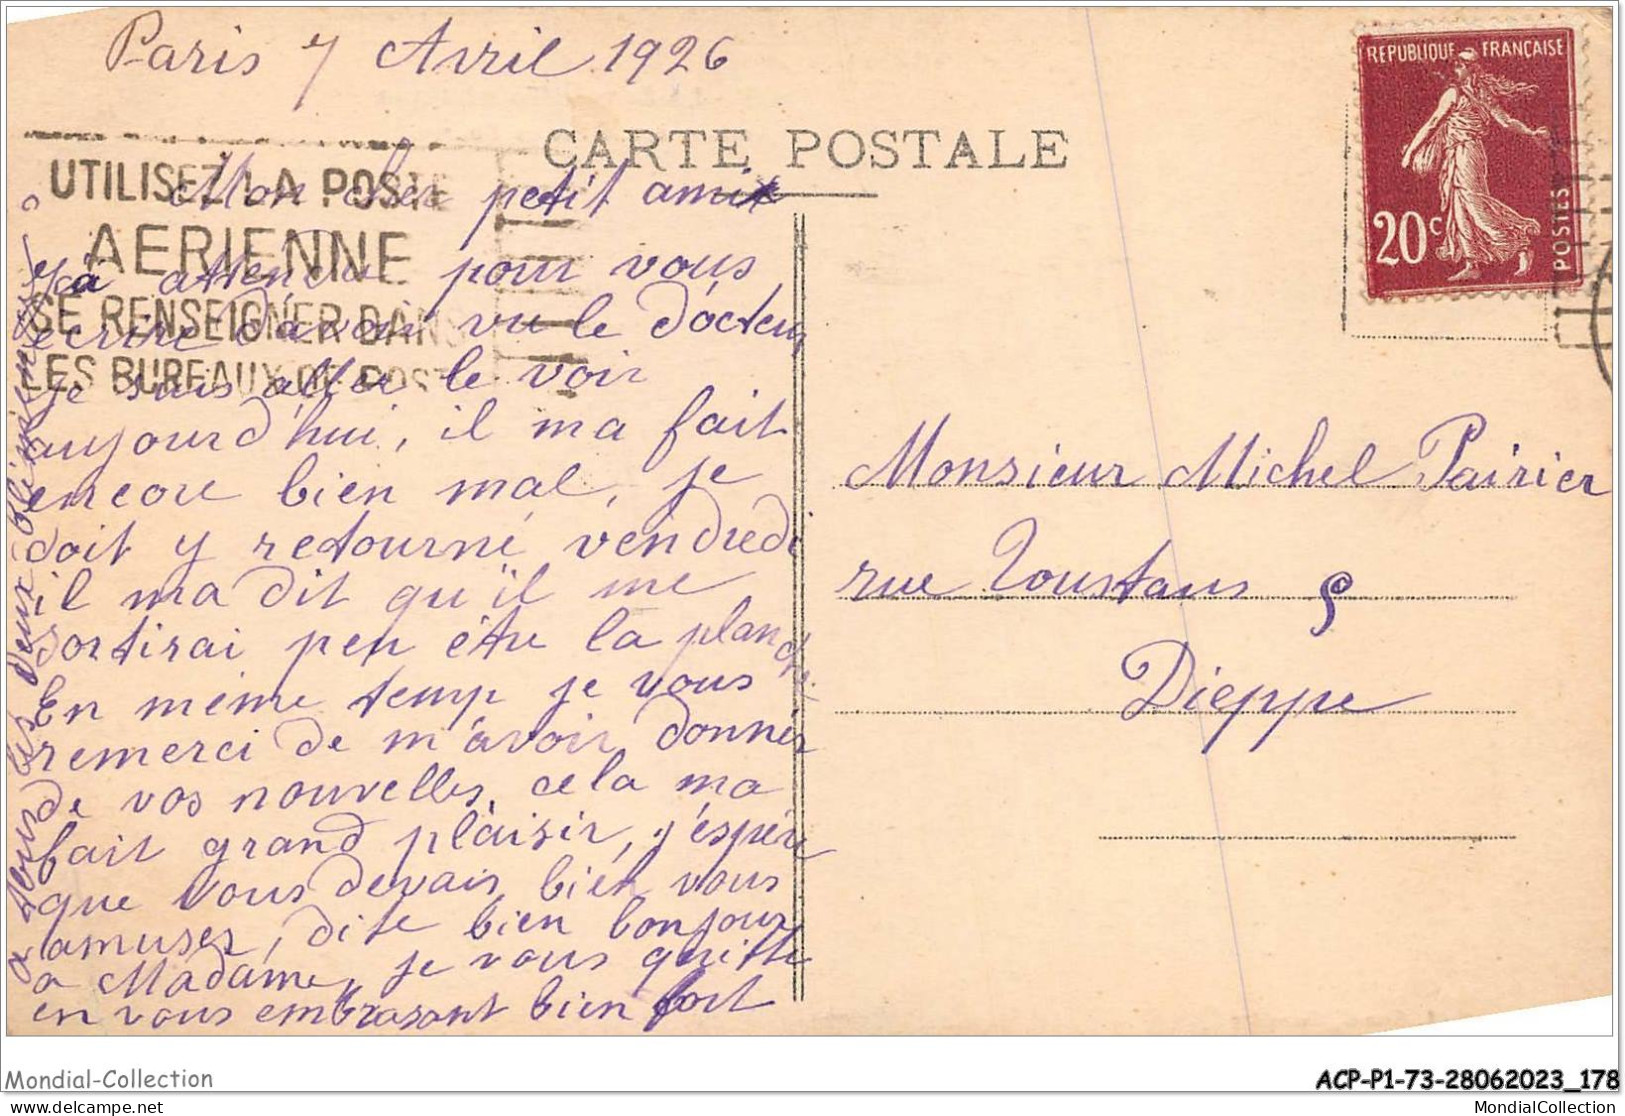 Paris 7 Avril 1926
CARTE POSTALE
REPUBLIQUE FRANÇAISE
20c
POSTES
UTILISEZ LA POSTE
AERIENNE
SE RENSEIGNER DANS
LES BUREAUX DE POSTE
Mon cher petit ami
j'ai attendu pour vous
ecrire d'avoir vu le docteur
je suis aller le voir
aujourd'hui, il ma fait
encore bien mal, je
doit y retourné vendredi
il ma dit qu'il me
sortirai peu être la
En même temp je vous
remerci de m'avoir donner
de vos nouvelles cela ma
fait grand plaisir, j'espère
que vous devais bien vous
amuser, dite bien bonjour
a Madame, je vous quitte
en vous embrasant bien fort
a tous les deux
Monsieur Michel Pairier
rue Toustans
Dieppe
Mondial-Collection
ACP-P1-73-28062023_178
www.delcampe.net
MondialCollection